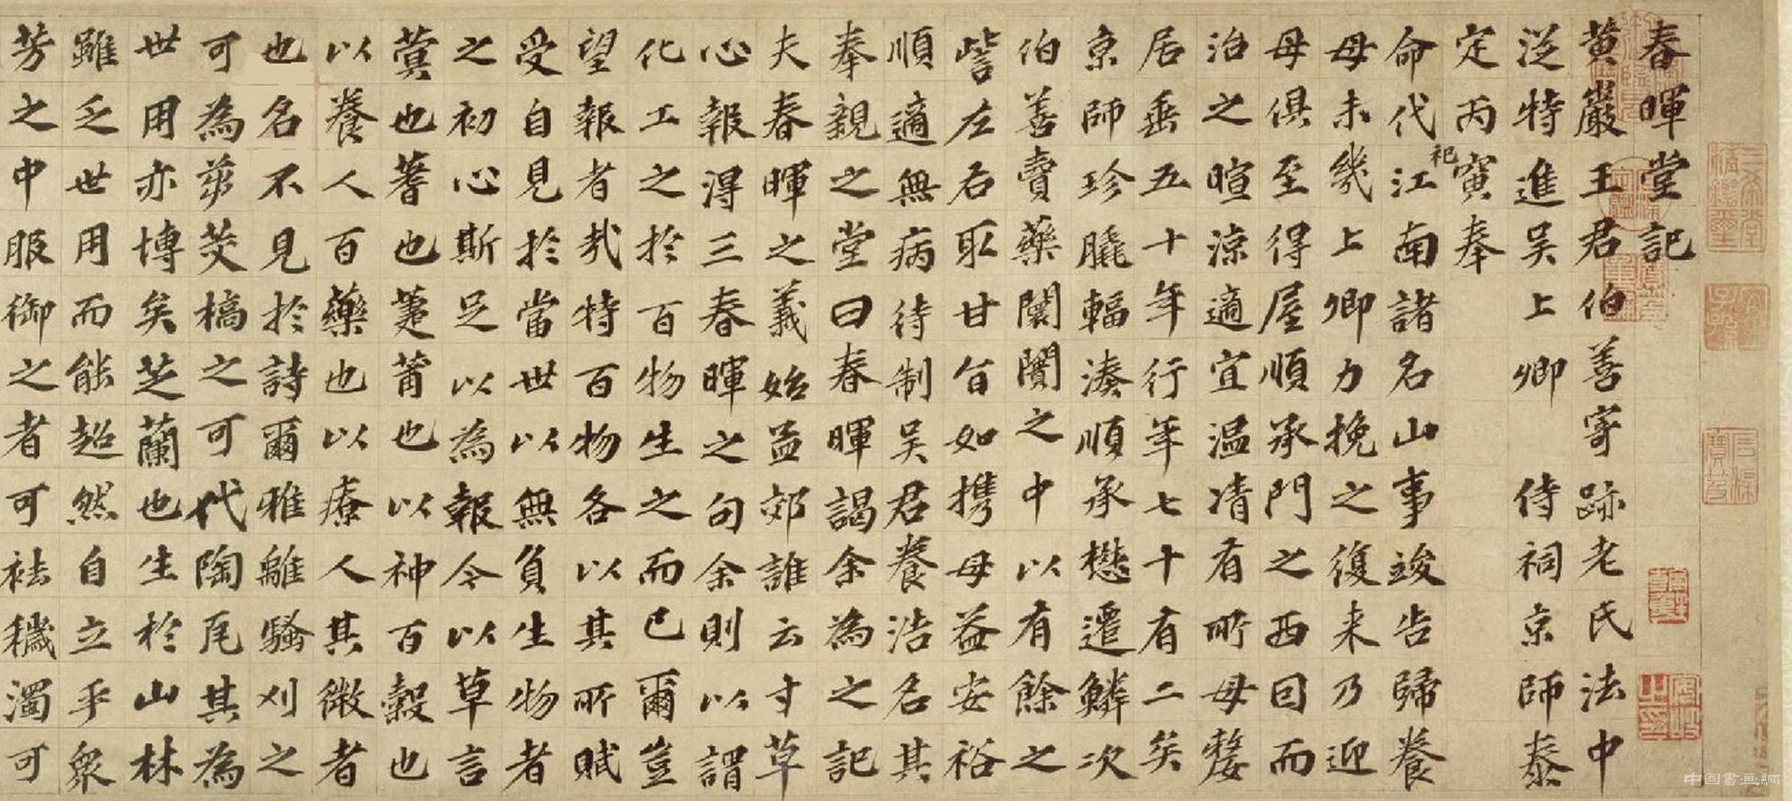 春暉堂記
黃巖王君伯善寄跡老氏法中
泛特進吴上卿 侍祠京師泰
定丙寅奉
命代祀江南諸名山事竣告歸養
母未幾上卿力挽之復来乃迎
母俱至得屋順承門之西囙而
治之暄涼適宜温凊有所母嫠
居垂五十年行年七十有二矣
京師珍膬輻湊順承懋遷鱗次
伯善賣藥闤闠之中以有餘之
訾左右取甘旨如携母益安裕
順適無病待制吴君養浩名其
奉親之堂曰春暉謁余為之記
夫春暉之義始孟郊誰云寸草
心報淂三春暉之句余則以謂
化工之於百物生之而已爾豈
望報者哉特百物各以其所賦
受自見於當世以無負生物者
之初心斯足以為報今以草言
蓂也蓍也萐莆也以神百穀也
以養人百藥也以療人其微者
也名不見於詩爾雅離騷刈之
可為茭槁之可代陶瓦其為
世用亦博矣芝蘭也生於山林
雖乏世用而能超然自立乎衆
芳之中服御之者可祛穢濁可
三希堂精鑑璽
宜子孫
中国書画網